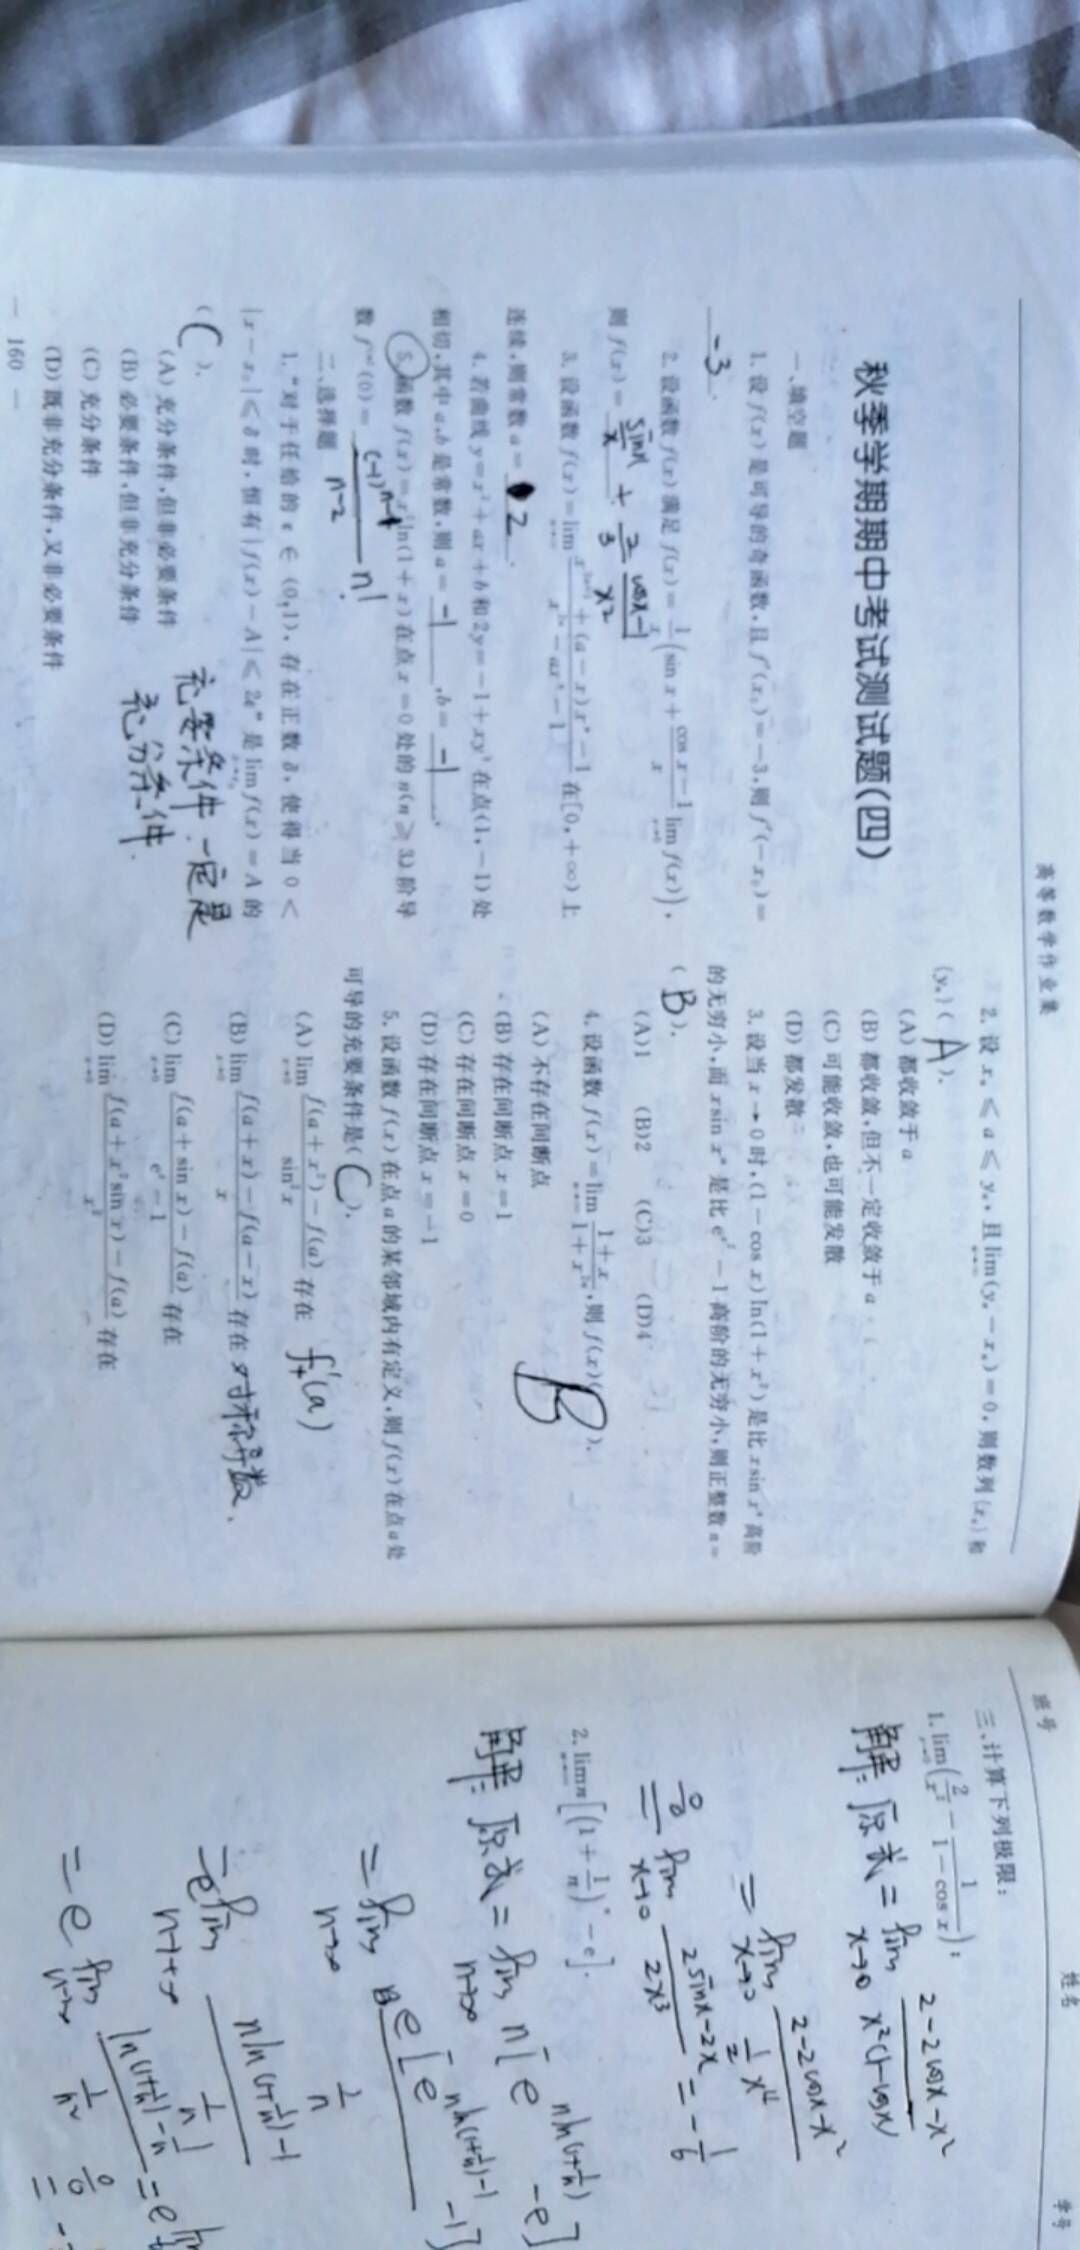 高等数学作业集
秋季学期期中考试测试题(四)
一、填空题
1. 设 f(x) 是可导的奇函数，且 f′(x₀)=−3，则 f′(−x₀)=
-3.
2. 设函数 f(x) 满足 f(x)=1/x(sin x+(cos x−1)/x lim_{x→0} f(x))，
则 f(x)= sinx/x + 2/3 (cosx-1)/x²
3. 设函数 f(x)=lim (x^{2n+1}+(a−x)xⁿ−1)/(x^{2n}−axⁿ−1) 在[0,+∞)上
连续，则常数 a= 2.
4. 若曲线 y=x²+ax+b 和 2y=−1+xy³ 在点(1,−1)处
相切，其中 a,b 是常数，则 a= -1 ,b= -1 .
5. 函数 f(x)=x²ln(1+x) 在点 x=0 处的 n(n≥3) 阶导
数 f⁽ⁿ⁾(0)= (-1)ⁿ⁻¹/(n-2) n!
二、选择题
1. “对于任给的 ε∈(0,1)，存在正数 δ，使得当 0<
|x−x₀|≤δ 时，恒有 |f(x)−A|≤2εⁿ” 是 lim f(x)=A 的
( C ).
(A) 充分条件，但非必要条件
(B) 必要条件，但非充分条件
(C) 充分条件
(D) 既非充分条件，又非必要条件
充要条件一定是
充分条件.
— 160 —
2. 设 xₙ≤a≤yₙ，且 lim(yₙ−xₙ)=0，则数列{xₙ}和
{yₙ}( A ).
(A) 都收敛于 a
(B) 都收敛，但不一定收敛于 a
(C) 可能收敛，也可能发散
(D) 都发散
3. 设当 x→0 时，(1−cos x)ln(1+x²) 是比 xsin xⁿ 高阶
的无穷小，而 xsin xⁿ 是比 e^{x²}−1 高阶的无穷小，则正整数 n=
( B ).
(A)1 (B)2 (C)3 (D)4
4. 设函数 f(x)=lim_{n→∞} (1+x)/(1+x^{2n})，则 f(x)( B ).
(A) 不存在间断点
(B) 存在间断点 x=1
(C) 存在间断点 x=0
(D) 存在间断点 x=−1
5. 设函数 f(x) 在点 a 的某邻域内有定义，则 f(x) 在点 a 处
可导的充要条件是( C ).
(A) lim_{x→0} (f(a+x²)−f(a))/sin²x 存在 f₊′(a)
(B) lim_{x→0} (f(a+x)−f(a−x))/x 存在 对称导数.
(C) lim_{x→0} (f(a+sin x)−f(a))/(eˣ−1) 存在
(D) lim_{x→0} (f(a+x²sin x)−f(a))/x³ 存在
班号 姓名 学号
三、计算下列极限：
1. lim_{x→0}(2/x²−1/(1−cos x))；
解: 原式 = lim_{x→0} (2-2cosx-x²)/(x²(1-cosx))
= lim_{x→0} (2-2cosx-x²)/(½x⁴)
0/0 = lim_{x→0} (2sinx-2x)/(2x³) = -1/6
2. lim_{n→∞} n[(1+1/n)ⁿ−e].
解: 原式 = lim_{n→∞} n[e^{nln(1+1/n)} -e]
= lim_{n→∞} e[e^{nln(1+1/n)-1} -1]/(1/n)
= e lim_{n→+∞} (nln(1+1/n)-1)/(1/n)
= e lim_{n→∞} (ln(1+1/n)-1/n)/(1/n²) 0/0 =